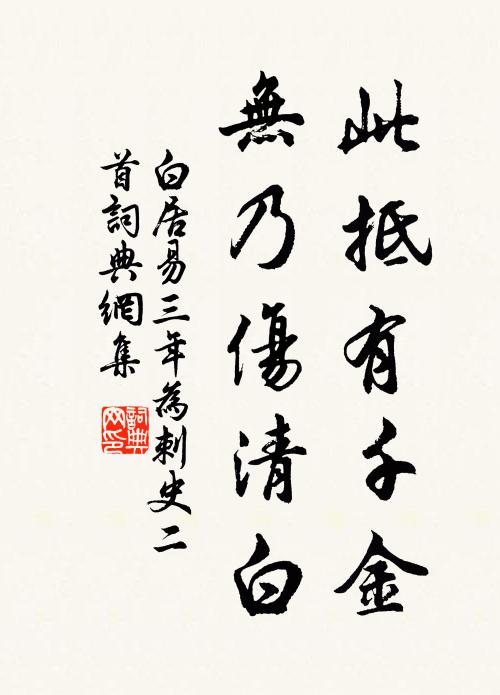 此抵有千金
無乃傷清白
白居易三年為刺史二
首詞典網集
詞典
网印